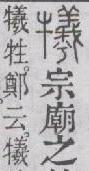 犧宗廟之
犧牲鄭云犧